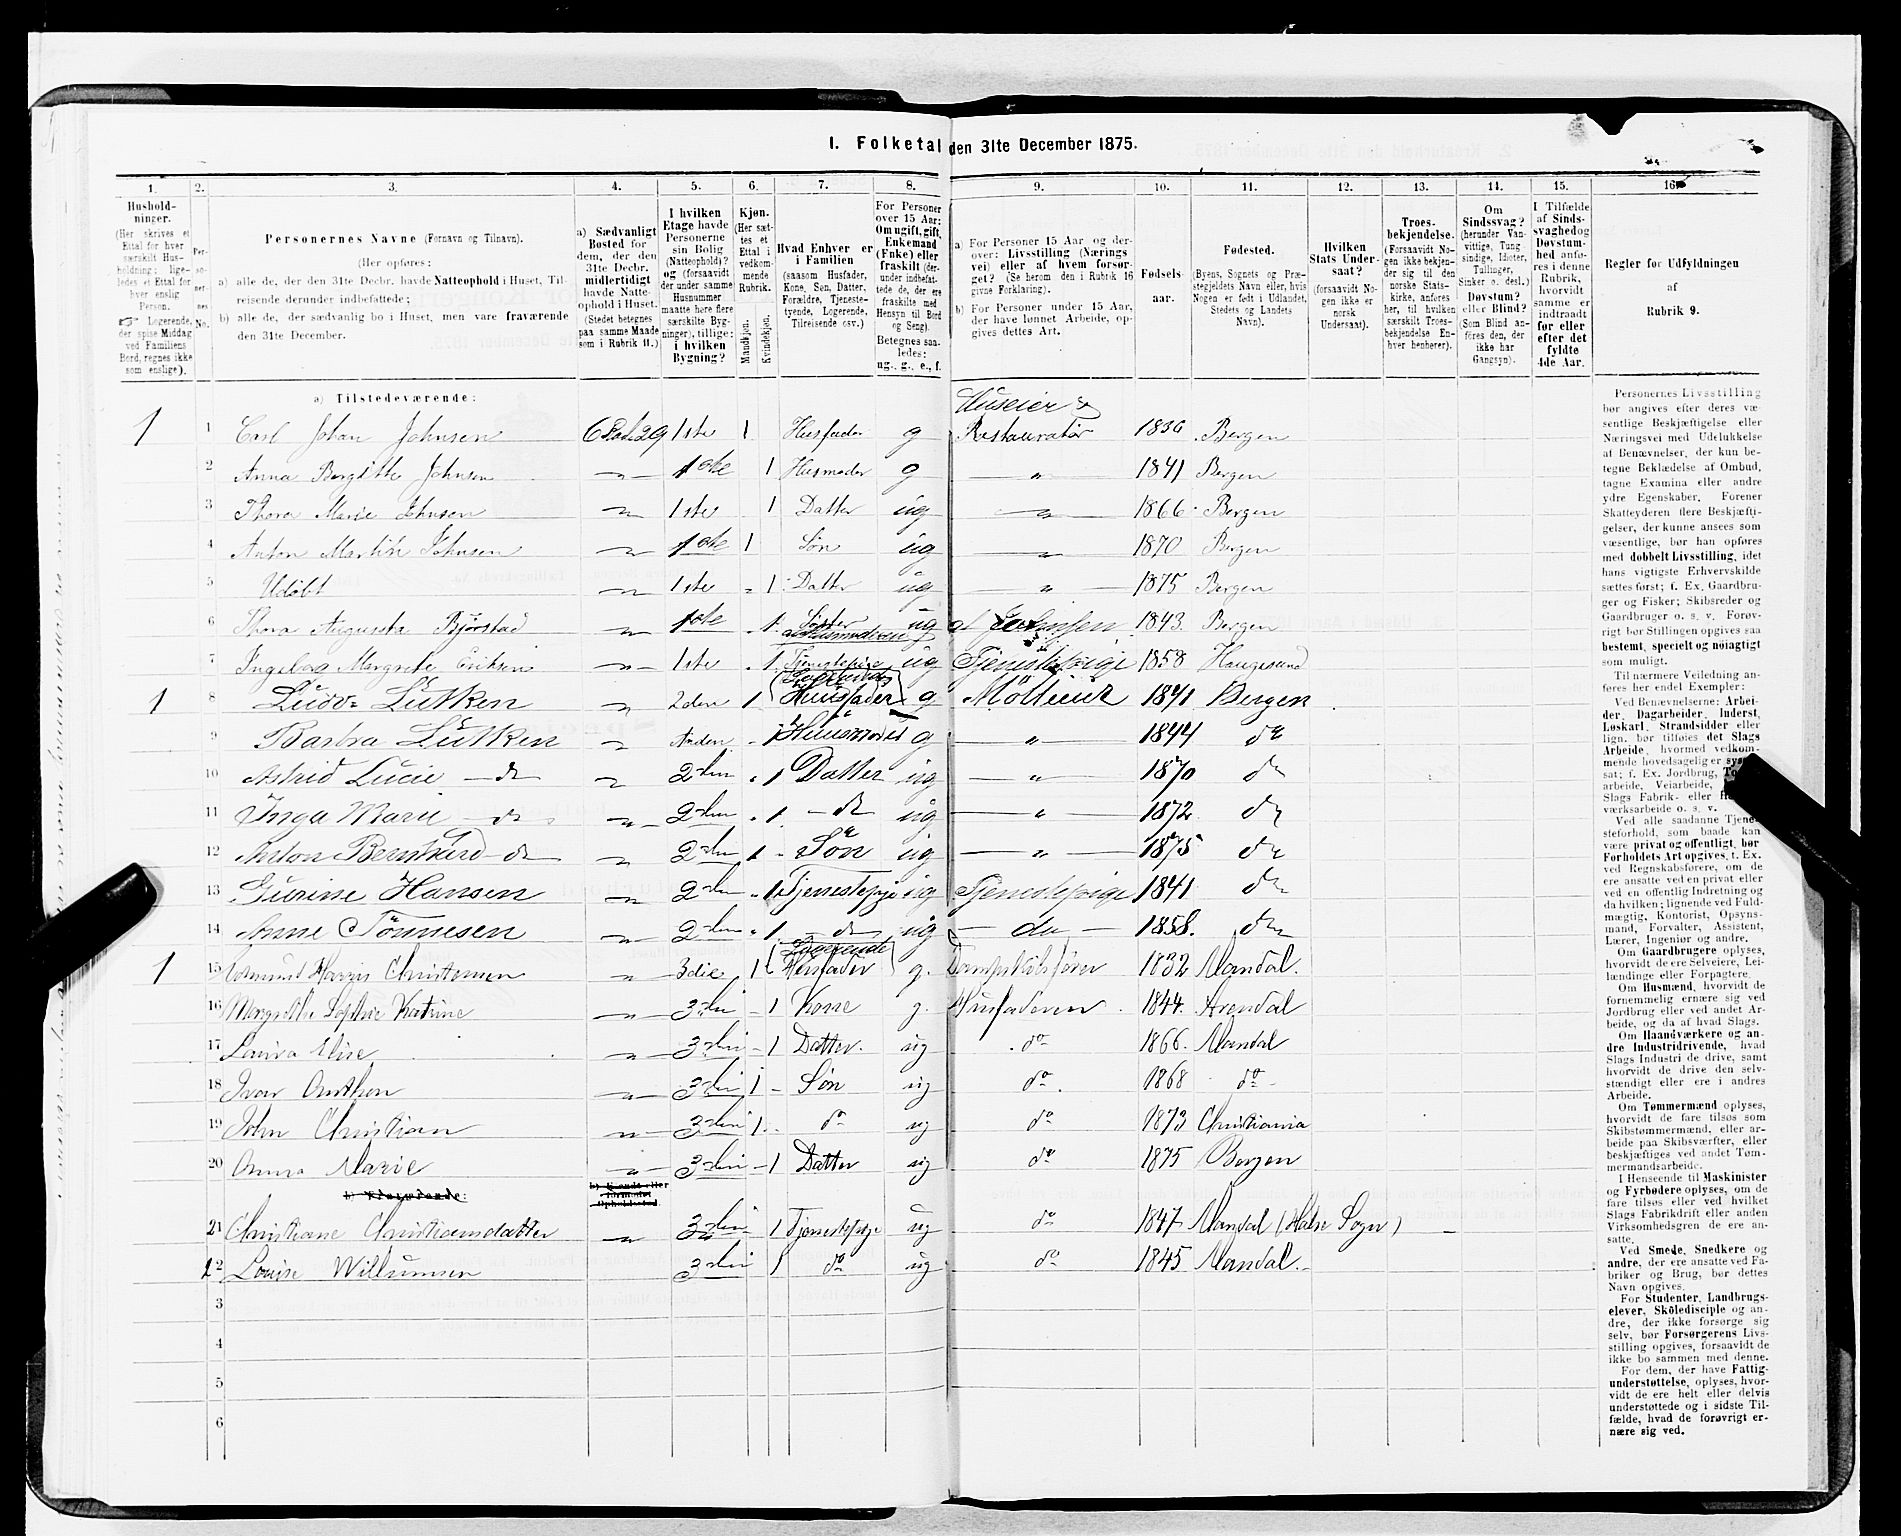 1. Folketal den 31te December 1875.
1. 2. 3. 4. 5. 6. 7. 8. 9. 10. 11. 12. 13. 14. 15. 16.
Hushold-
ninger.
(Her skrives et
Ettal for hver
særskilt Hus-
holdning; lige-
ledes et Ettal for
hver enslig
Person.
☞ Logerende,
der spise Middag
ved Familiens
Bord, regnes ikke
som enslige).
Per-
so-
ner-
nes
No.
Personernes Navne (Fornavn og Tilnavn).
(Her opføres:
a) alle de, der den 31te Decbr. havde Natteophold i Huset, Til-
reisende derunder indbefattede;
b) alle de, der sædvanlig bo i Huset, men vare fraværende
den 31te December.
a) Sædvanligt
Bosted for
dem, der den
31te Decbr.
midlertidigt
havde Natte-
ophold i Huset.
(Stedet betegnes
paa samme Maade
som i Rubrik 11.)
I hvilken
Etage havde
Personerne
sin Bolig
(Natteophold)?
og (forsaavidt
der under samme
Husnummer
maatte høre flere
særskilte Byg-
ninger), tillige:
i hvilken
Bygning?
Kjøn.
(Her sæt-
tes et
Ettal i
vedkom-
mende
Rubrik.
Mandkjøn.
Kvindekjøn.
Hvad Enhver er
i Familien
(saasom Husfader,
Kone, Søn, Datter,
Forældre, Tjeneste-
tyende, Logerende,
Tilreisende osv.)
For Personer
over 15 Aar:
Om ugift, gift,
Enkemand
(Enke) eller
fraskilt (der-
under indbefat-
tede de, der ere
fraskilte med
Hensyn til Bord
og Seng).
Betegnes saa-
ledes:
ug., g., e., f.
a) For Personer 15 Aar og der-
over: Livsstilling (Nærings
vei) eller af hvem forsør-
get? (Se herom den i Rubrik 16
givne Forklaring).
b) For Personer under 15 Aar,
der have lønnet Arbeide, op-
gives dettes Art.
Fødsels-
aar.
Fødested.
(Byens, Sognets og Præ-
stegjeldets Navn eller, hvis
Nogen er født i Udlandet,
Stedets og Landets
Navn).
Hvilken
Stats Under-
saat?
(forsaavidt No-
gen ikke er
norsk
Undersaat).
Troes-
bekjendelse.
(Forsaavidt No-
gen ikke bekjen-
der sig til den
norske Stats-
kirke, anføres
her, til hvilken
særskilt Troes-
bekjendelse En-
hver henhører).
Om
Sindssvag?
(herunder Van-
vittige, Tung
sindige, Idioter,
Tullinger,
Sinker o. desl.)
Døvstum?
eller Blind?
(Som Blind an-
føres den, der
ikke har
Gangsyn).
I Tilfælde
af Sinds-
svaghed og
Døvstum-
hed anfø-
res i denne
Rubrik,
hvorvidt
samme er
indtraadt
før eller
efter det
fyldte
4de Aar.
Regler for Udfyldningen
af
Rubrik 9.
a) Tilstedeværende:
Huseier og
1 1 Carl Johan Johnsen 1ste 1 Husfader g Restauratør 1836 Bergen
2 Anna Bergitte Johnsen 1ste 1 Husmoder g " 1841 Bergen
3 Thora Marie Johnsen 1ste 1 Datter ug " 1866 Bergen
4 Anton Martin Johnsen 1ste 1 Søn ug " 1870 Bergen
5 Udøbt 1ste 1 Datter ug " 1875 Bergen
6 Thora Augusta Bjørstad 1ste 1 Søster ug 1843 Bergen
7 Ingeborg Margrete Eriksen 1ste 1 Tjenestepige ug Tjenestepige 1858 Haugesund
Logerende
1 8 Ludv. Lütken 2den 1 Husfader g 1841 Bergen
9 Barbra Lütken Anden 1 Husmoder g " 1844 do
10 Astrid Lucie do 2den 1 Datter ug " 1870 do
11 Inga Marie do 2den 1 do ug " 1872 do
12 Anton Bernhard do 2den 1 Søn ug " 1875 do
13 Gurine Hansen 2den 1 Tjenestepige ug Tjenestepige 1841 do
14 Anne Tönnesen 2den 1 do ug do 1858. do
Logerende
1 15 Christensen 3die 1 Husfader g. Dampskibsfører 1832 Mandal.
16 Margrethe Sophie Katrine 3die 1 Kone g. Husfaderen 1844. Arendal
17 Laura Elise 3die 1 Datter. ug do 1866. Mandal
18 Ivar Anthon 3die 1 Søn ug do 1868 do
19 John Christian 3die 1 do ug do 1873 Christiania
20 Anna Marie 3die 1 Datter ug do 1875 Bergen
21 Christiane Christiansdatter 3die 1 Tjenestepige ug do 1847 Mandal (Halse Sogn)
22 Louise Willumsen 3die 1 do ug do 1845 Mandal.
3
4
5
6
Personernes Livsstilling
bør angives efter deres væ-
sentlige Beskjæftigelse eller
Næringsvei med Udelukkelse
af Benævnelser, der kun be-
tegne Beklædelse af Ombud,
tagne Examina eller andre
ydre Egenskaber. Forener
Skatteyderen flere Beskjæfti-
gelser, der kunne ansees som
væsentlige, bør han opføres
med dobbelt Livsstilling, idet
hans vigtigste Erhvervskilde
sættes først; f. Ex. Gaardbru-
ger og Fisker; Skibsreder og
Gaardbruger o. s. v. Forøv-
rigt bør Stillingen opgives saa
bestemt, specielt og nøiagtigt
som muligt.
Til nærmere Veiledning an-
føres her endel Exempler:
Ved Benævnelserne: Arbei-
der, Dagarbeider, Inderst,
Løskarl, Strandsidder eller
lign. bør tilføies det Slags
Arbeide, hvormed vedkom-
mende hovedsagelig er syssel-
sat; f. Ex. Jordbrug,
arbeide, Veiarbeide,
Slags Fabrik- eller
værksarbeide o. s. v.
Ved alle saadanne Tjene-
steforhold, som baade kan
være privat og offentligt, bør
Forholdets Art opgives, t. Ex.
ved Regnskabsførere, om de
ere ansatte ved en privat eller
ved en offentlig Indretning og
da hvilken; lignende ved Fuld-
mægtig, Kontorist, Opsyns-
mand, Forvalter, Assistent,
Lærer, Ingeniør og andre.
Om Gaardbrugere oplyses,
hvorvidt de ere Selveiere, Lei-
lændinge eller Forpagtere.
Om Husmænd, hvorvidt de
fornemmelig ernære sig ved
Jordbrug eller ved andet Ar-
beide, og da af hvad Slags.
Om Haandværkere og an-
dre Industridrivende, hvad
Slags Industri de drive, samt
hvorvidt de drive den selv-
stændigt eller ere i andres
Arbeide.
Om Tømmermænd oplyses,
hvorvidt de fare tilsøs som
Skibstømmermænd, eller ar-
beide paa Skibsværfter, eller
beskjæftiges ved andet Tøm-
mermandsarbeide.
I Henseende til Maskinister
og Fyrbødere oplyses, om de
fare tilsøs eller ved hvilket
Slags Fabrikdrift eller anden
Virksomhedsgren de ere an-
satte.
Ved Smede, Snedkere og
andre, der ere ansatte ved Fa-
briker og Brug, bør dettes
Navn opgives.
For Studenter, Landbrugs-
elever, Skoledisciple og an-
dre, der ikke forsørge sig
selv, bør Forsørgerens Livs-
stilling opgives, forsaavidt de
ikke bo sammen med denne.
For dem, der have Fattig-
understøttelse, oplyses, hvor-
vidt de ere helt eller delvis
understøttede og i sidste Til-
fælde, hvad de forøvrigt er-
nære sig ved.